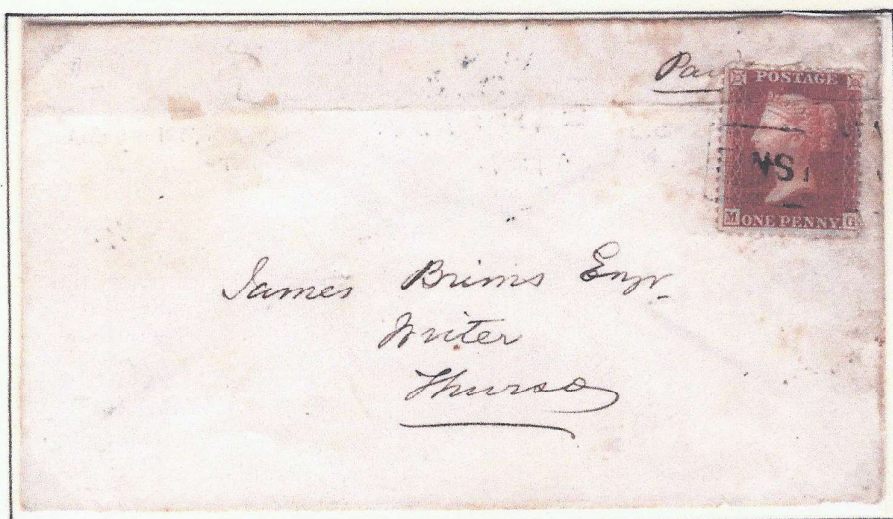 POSTAGE
M ONE PENNY G
James Brims Esqr
Writer
Thurso